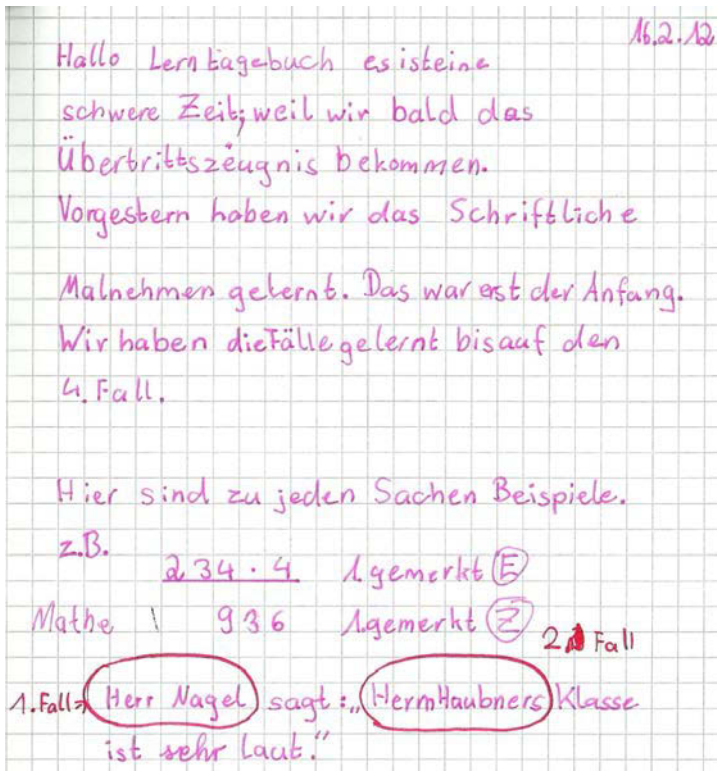 16.2.12
Hallo Lerntagebuch es ist eine
schwere Zeit, weil wir bald das
Übertrittszeugnis bekommen.
Vorgestern haben wir das Schriftliche
Malnehmen gelernt. Das war erst der Anfang.
Wir haben die Fälle gelernt bis auf den
4. Fall.
Hier sind zu jeden Sachen Beispiele.
z.B.
234 · 4 1 gemerkt E
Mathe 936 1 gemerkt Z
2. Fall
1. Fall→ Herr Nagel sagt: „Herrn Haubners Klasse
ist sehr laut.“